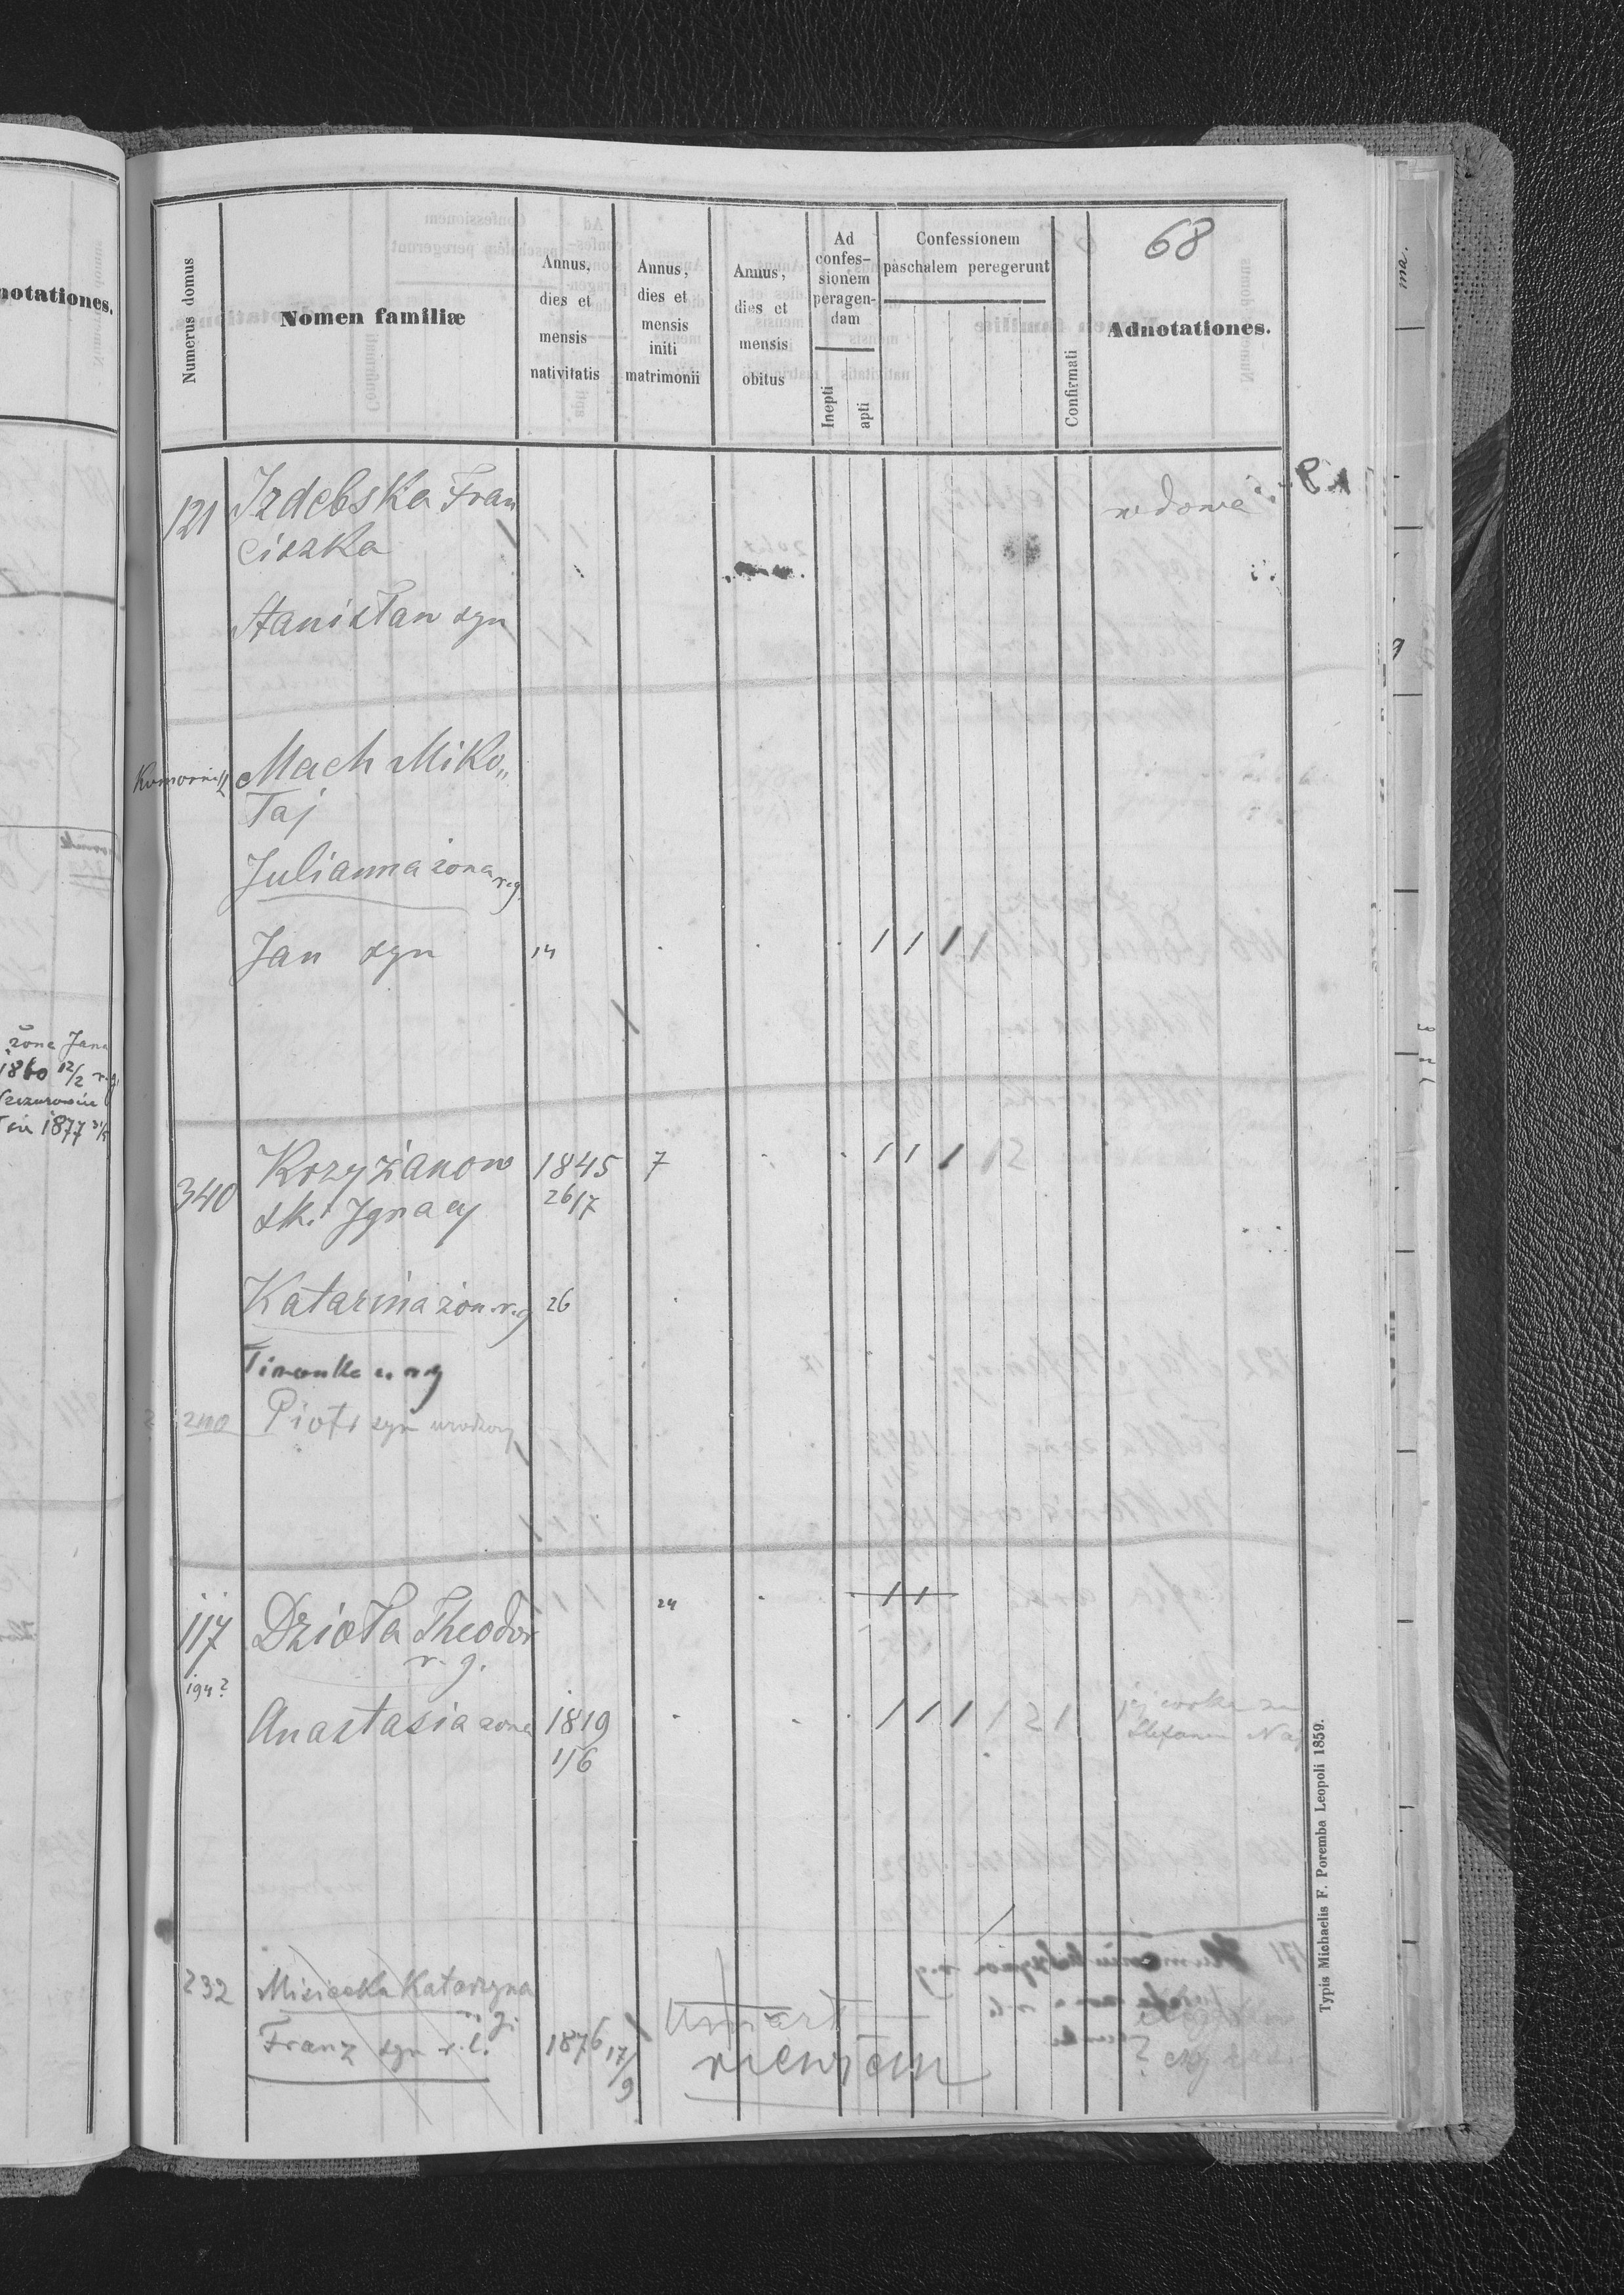 notationes.
žona Jana
1860 12/2 r.g.
1877
68
Numerus domus
Nomen familiæ
Annus, dies et mensis nativitatis
Annus, dies et mensis initi matrimonii
Annus, dies et mensis obitus
Ad confes-sionem peragen-dam
Inepti
apti
Confessionem paschalem peregerunt
Confirmati
Adnotationes.
121 Izdebska Fran wdowa
ciszka
Stanisław syn
Komornik Mach Miko„
łaj
Julianna żona r.g.
Jan syn 14 1 1 1 1
340 Krzyżanow 1845 7 1 1 1 1 2
ski Ignacy 26/7
Katarina żon r.g 26
240 Piotr syn urodzony
117 Dzioła Theodor 24 1 1
r. g.
194?
Anastasia żona 1819 1 1 1 1 2 1 jej córka za
1/6 Stefanem Naj
232 Misiecka Katarzyna
r. g.
Franz syn r. l. 1876 17/9 umart
niewiem
Typis Michaelis F. Poremba Leopoli 1859.